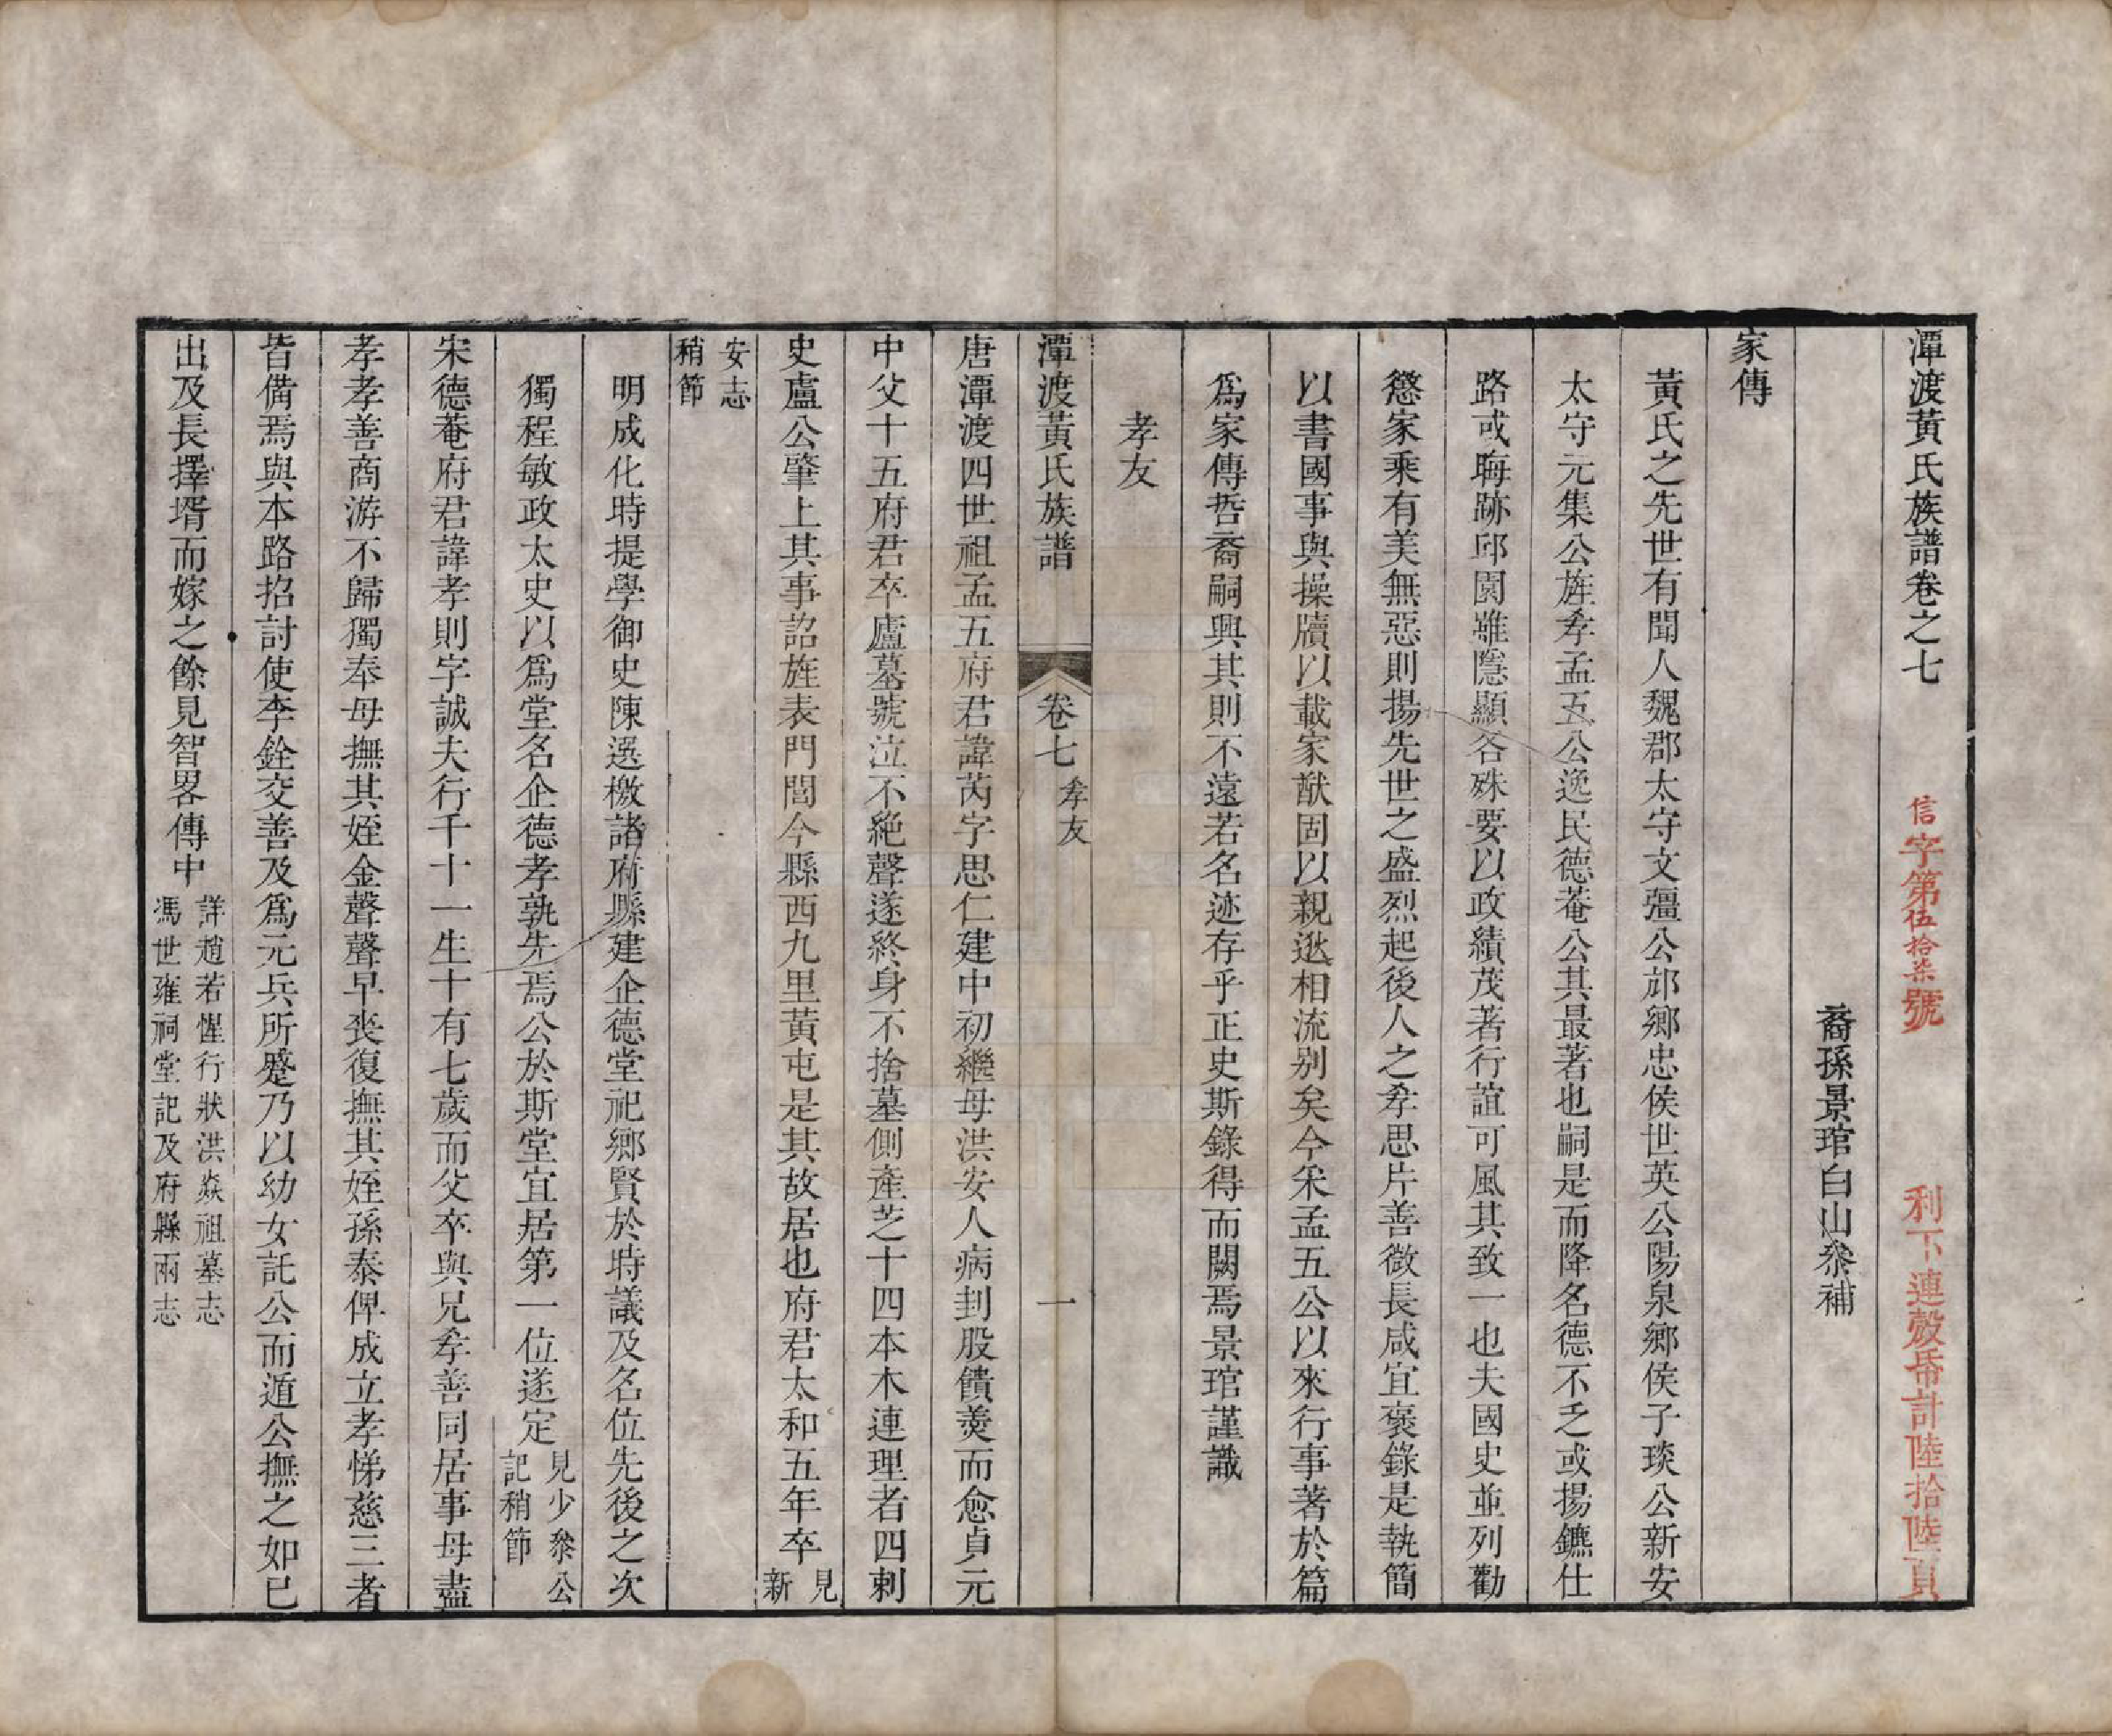 潭渡黃氏族譜卷之七
信字第伍拾柒號
利下連殼帋計陸拾陸頁
裔孫景琯白山叅補
家傳
黃氏之先世有聞人魏郡太守文彊公邟鄉忠侯世英公陽泉鄉侯子琰公新安
太守元集公旌孝孟五公逸民德菴公其最著也嗣是而降名德不乏或揚鑣仕
路或晦跡邱園雖隱顯各殊要以政績茂著行誼可風其致一也夫國史並列勸
懲家乘有美無惡則揚先世之盛烈起後人之孝思片善微長咸宜褒錄是執簡
以書國事與操牘以載家猷固以親逖相流别矣今采孟五公以來行事著於篇
爲家傳哲裔嗣興其則不遠若名迹存乎正史斯錄得而闕焉景琯謹識
孝友
潭渡黃氏族譜 卷七 孝友 一
唐潭渡四世祖孟五府君諱芮字思仁建中初繼母洪安人病刲股饋羹而愈貞元
中父十五府君卒廬墓號泣不絶聲遂終身不捨墓側產芝十四本木連理者四刺
史盧公肇上其事詔旌表門閭今縣西九里黃屯是其故居也府君太和五年卒見新
安志稍節
明成化時提學御史陳選檄諸府縣建企德堂祀鄉賢於時議及名位先後之次
獨程敏政太史以爲堂名企德孝孰先焉公於斯堂宜居第一位遂定見少叅公記稍節
宋德菴府君諱孝則字誠夫行千十一生十有七歲而父卒與兄孝善同居事母盡
孝孝善商游不歸獨奉母撫其姪金聲聲早喪復撫其姪孫泰俾成立孝悌慈三者
皆備焉與本路招討使李銓交善及爲元兵所蹙乃以幼女託公而遁公撫之如已
出及長擇壻而嫁之餘見智畧傳中詳趙若惺行狀洪焱祖墓志馮世雍祠堂記及府縣兩志